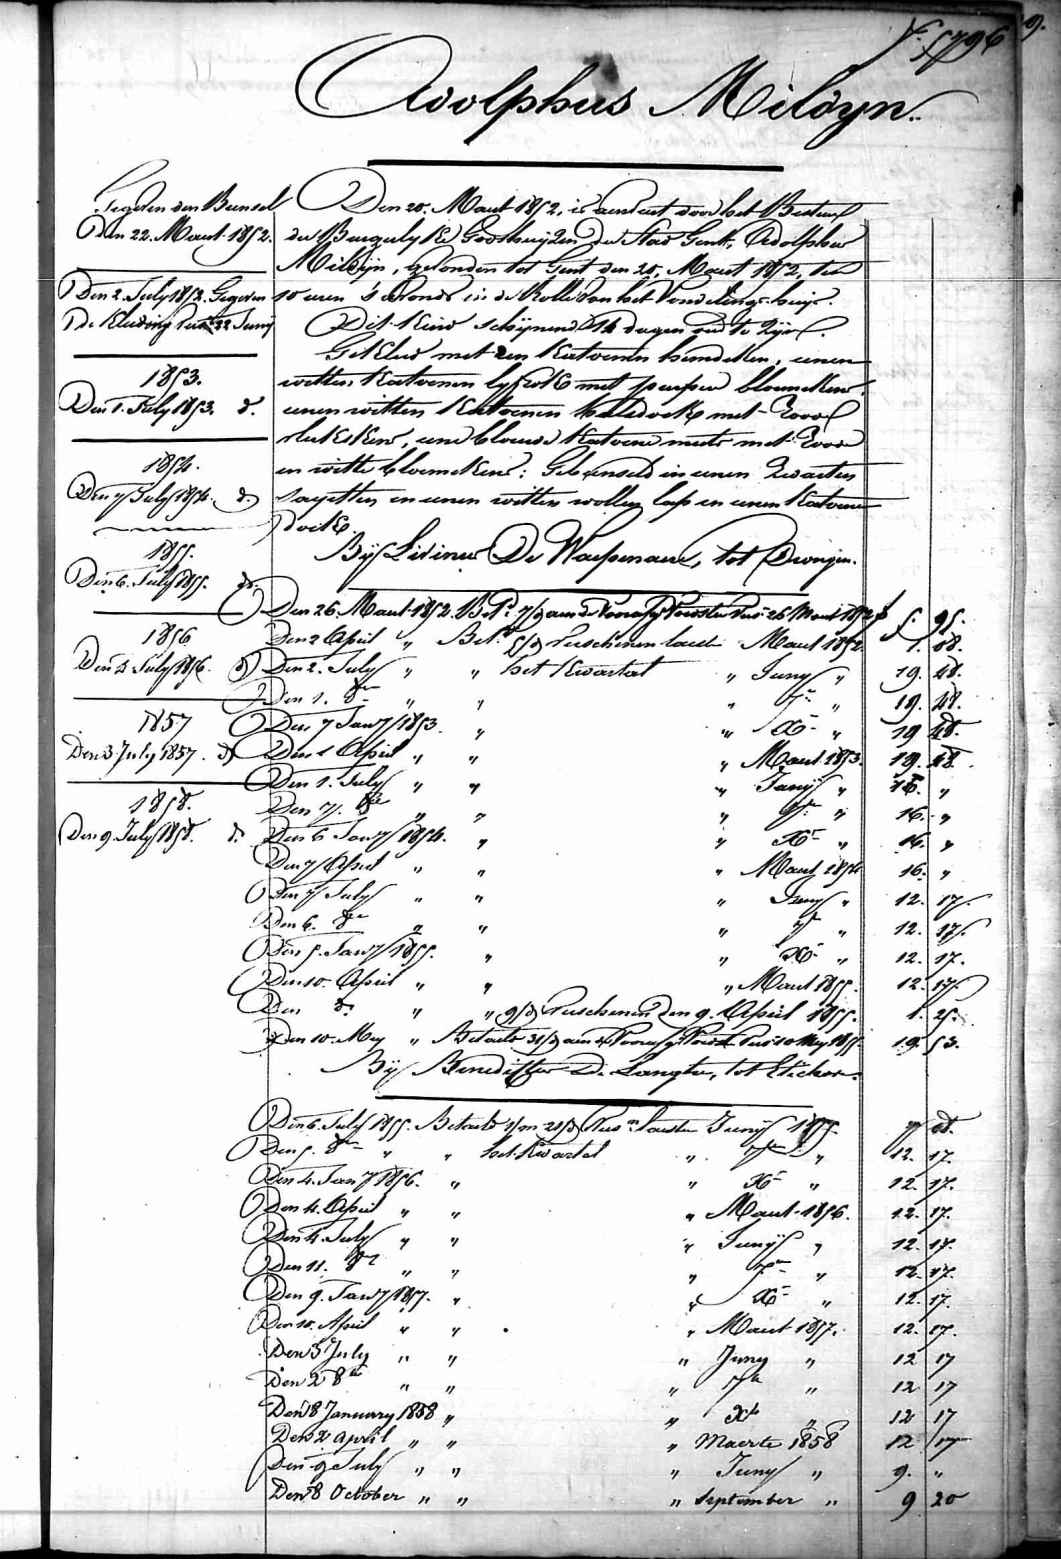 9.
Adolphus Mildyn.
Gegeven den Bunsel
Den 22. Maart 1852.
Den 2. July 1852. Gegeven
de Kleeding
1853.
Den 1. July 1853. d.
1854.
Den 7 July 1854. d.
1855.
Den 6. July 1855. d.
1856
Den 4 July 1856. d.
1857
Den 3 July 1857. d.
1858.
Den 9 July 1858. d.
Den 20. Maart 1852, is door het Bestuur
der Burgelyke Godshuyzen der Stad Gent, Adolphus
Mildyn, gevonden tot Gent den 20, Maart 1852, ten
10 uren 's avonds in de Rolle van het Vondelings-huys.
Dit kind schynend 14 dagen oud te zyn.
Gekleed met een katoenen hemdeken, eenen
witten katoenen lyfrok met purper bloemekens,
eenen witten katoenen halsdoek met rood
eene blauwe katoene muts met roode
en witte bloemekens: Gebunseld in eenen zwarten
sayetten en eenen witten wollen lap en eenen katoenen
doek.
By Livinus De Waepenaere, tot
Den 26. Maart 1852. 26 Maart 1852 f. 95.
Den 2 April " Maart 1852 1. 68.
Den 2. July " " het Kwartaal " Juny " 19. 48.
Den 1. 8re " " " 7re " 19. 48.
Den 7 Jan 1853. " " Xre " 19 48.
Den 1 April " " " Maart 1853. 19. 48.
Den 1. July " " " Juny " 16. "
Den 7. 8re " " " 7re " 16. "
Den 6 Jan 1854. " " Xre " 16. "
Den 7 April " " " Maart 1854 16. "
Den 7 July " " " Juny " 12. 17.
Den 6. 8re " " " 7re " 12. 17.
Den 5. Jan 1855. " " Xre " 12. 17.
Den 10. April " " " Maart 1855. 12. 17.
Den d. " " 9/d verschenen den 9. April 1855. 1. 25.
Den 10. Mey " Betaald 10 Mey 1855. 19. 53.
By Benedictus De Langhe, tot
Den 6. July 1855. Betaald Juny 1855. 7 48.
Den 5. 8re " " het Kwartaal " 7re " 12. 17.
Den 4. Jan 1856. " " Xre " 12. 17.
Den 4. April " " " Maart 1856. 12. 17.
Den 4. July " " " Juny " 12. 17.
Den 11. 8re " " " 7re " 12. 17.
Den 9. Jan 1857. " " Xre " 12. 17.
Den 10. April " " " Maart 1857. 12. 17.
Den 3 July " " " Juny " 12 17
Den 2 8re " " " 7re " 12 17
Den 8 January 1858 " " Xre " 12 17
Den 2 April " " " Maerte 1858 12 17
Den 9 July " " " Juny " 9. "
Den 8 October " " " September " 9 20